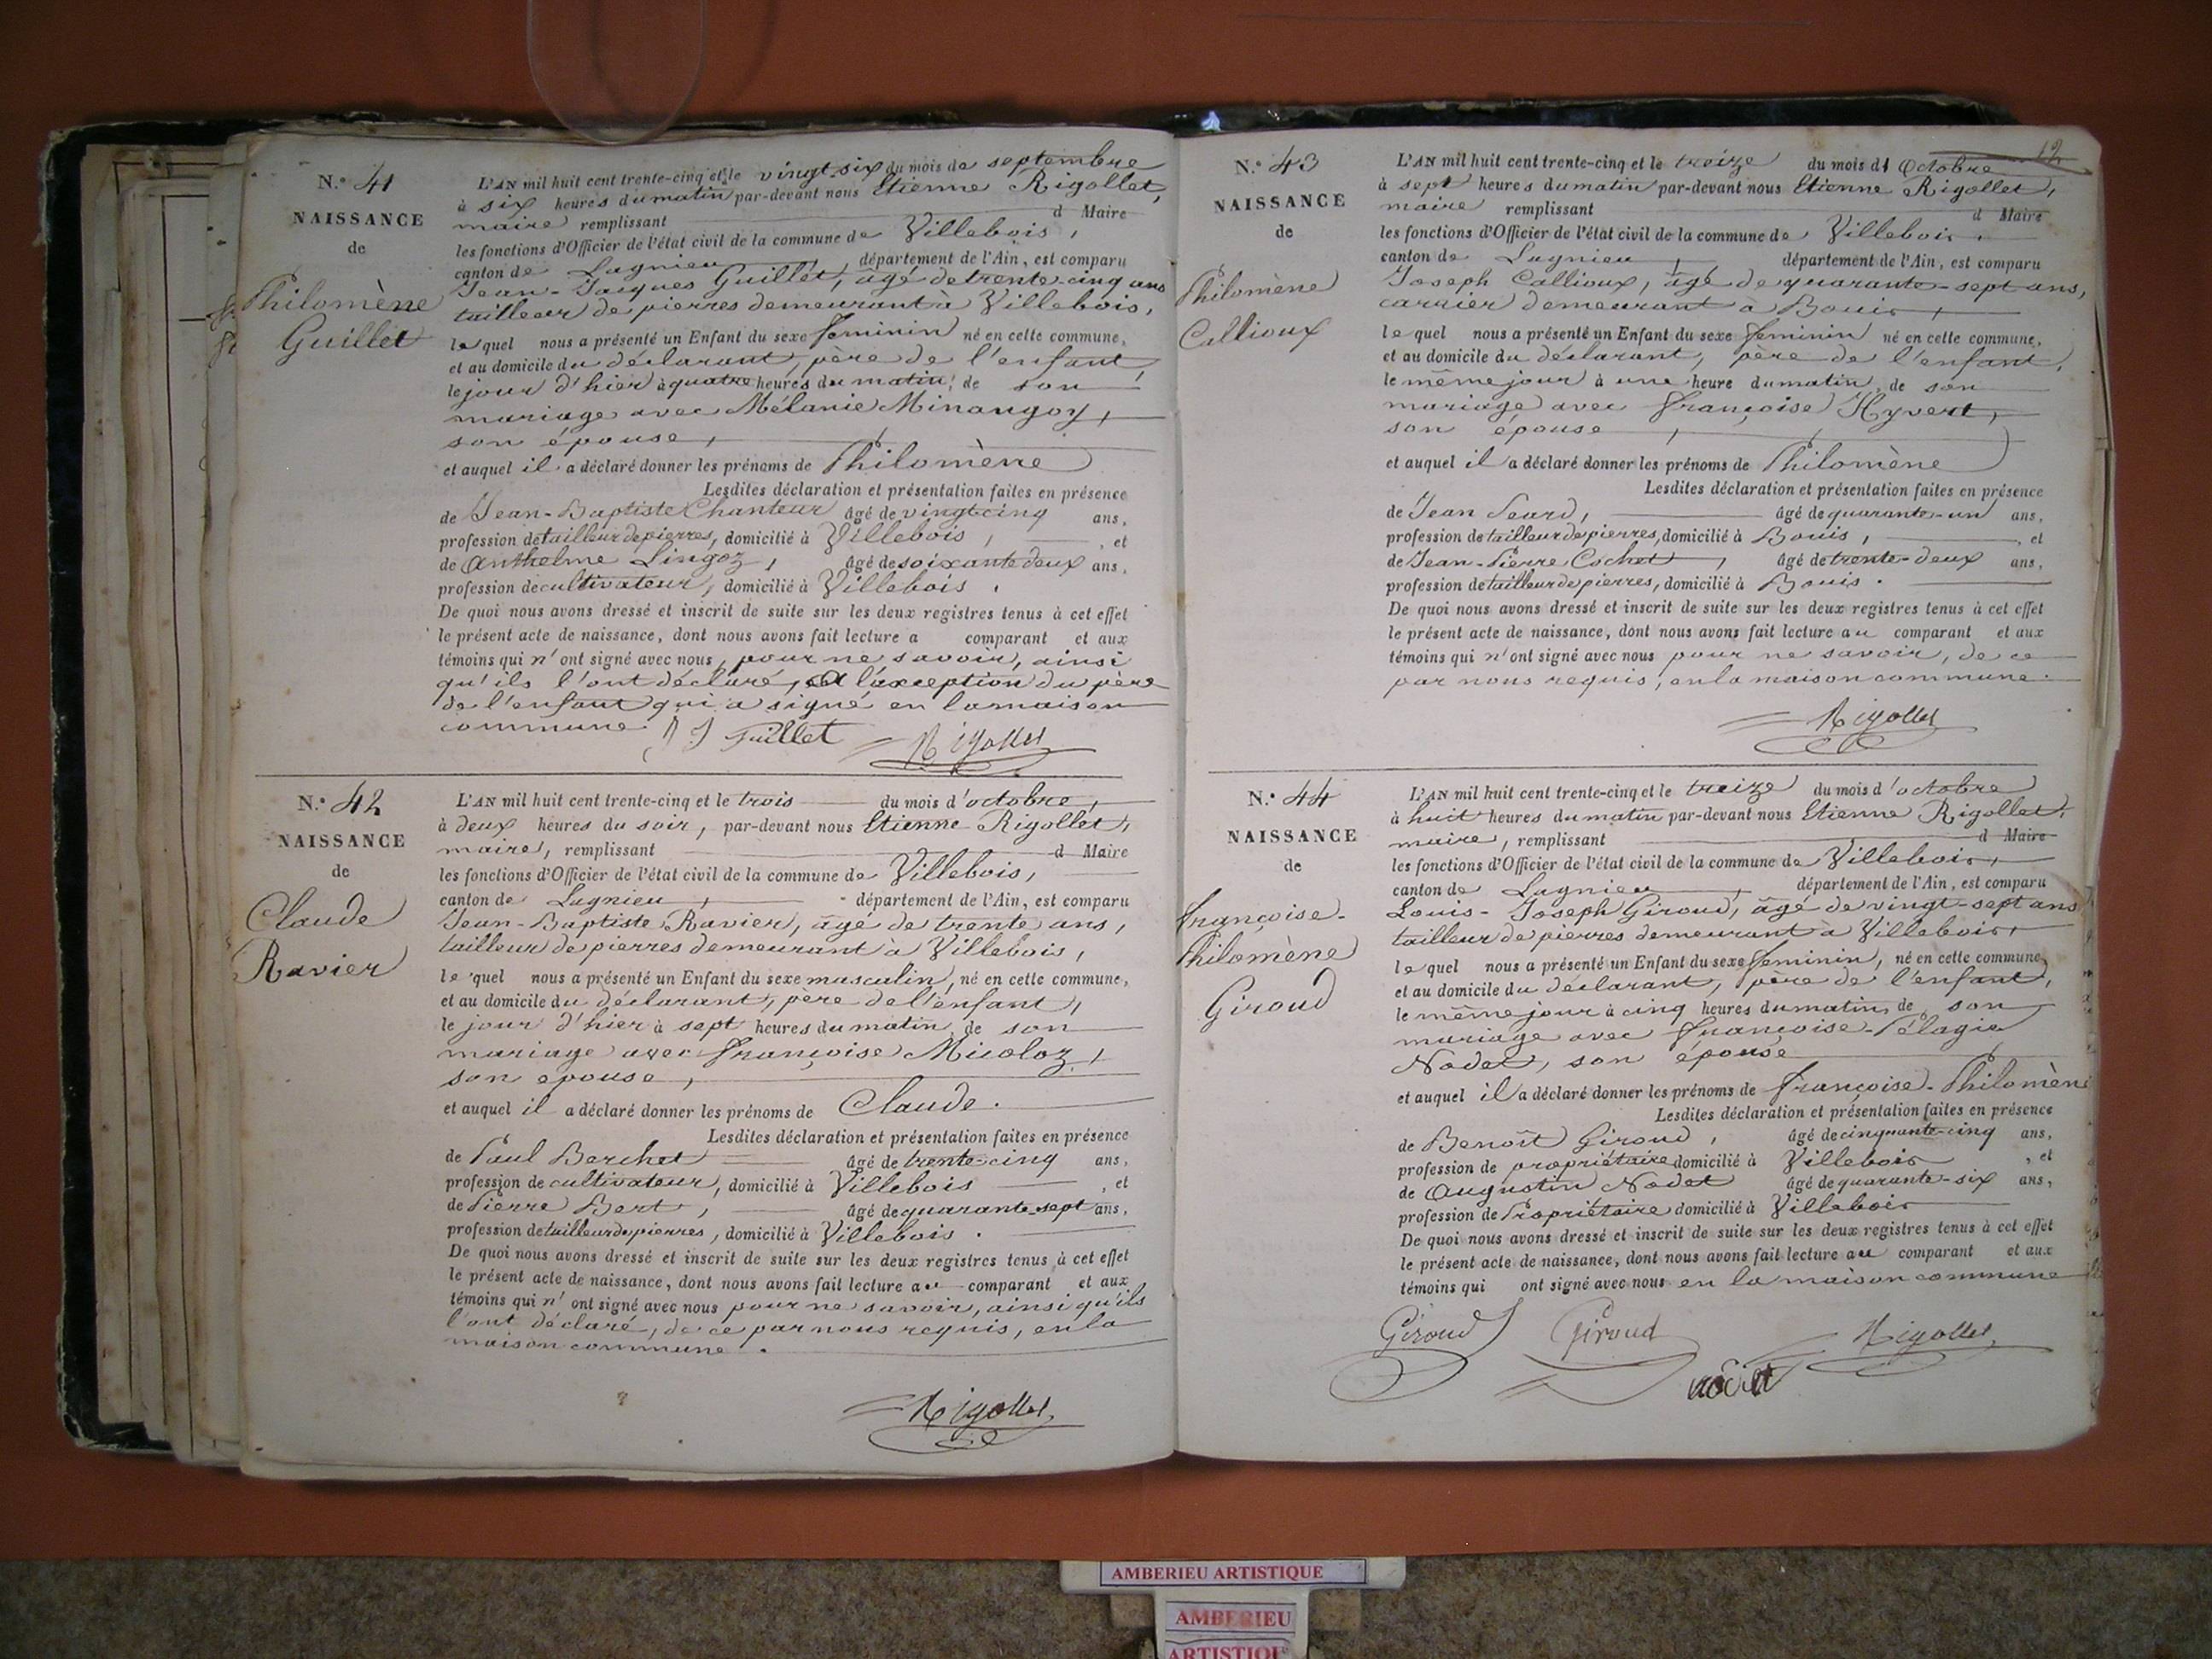 N.° 41
NAISSANCE
de
Philomène
Guillet
L'AN mil huit cent trente-cinq et le vingt-six du mois de septembre
à six heures du matin par-devant nous Etienne Rigollet,
maire remplissant d Maire
les fonctions d'Officier de l'état civil de la commune de Villebois,
canton de Lagnieu, département de l'Ain, est comparu
Jean-Jacques Guillet, âgé de trente-cinq ans
tailleur de pierres demeurant à Villebois,
lequel nous a présenté un Enfant du sexe feminin né en cette commune,
et au domicile du déclarant, père de l'enfant,
le jour d'hier à quatre heures du matin, de son
mariage avec Mélanie Minangoy,
son épouse,
et auquel il a déclaré donner les prénoms de Philomène
Lesdites déclaration et présentation faites en présence
de Jean-Baptiste Chanteur âgé de vingt-cinq ans,
profession de tailleur de pierres, domicilié à Villebois, , et
de Anthelme Lingoz, âgé de soixante deux ans,
profession de cultivateur, domicilié à Villebois.
De quoi nous avons dressé et inscrit de suite sur les deux registres tenus à cet effet
le présent acte de naissance, dont nous avons fait lecture a comparant et aux
témoins qui n'ont signé avec nous, pour ne savoir, ainsi
qu'ils l'ont déclaré, à l'exception du père
de l'enfant qui a signé en la maison
commune. J J Guillet Rigollet
N.° 42
NAISSANCE
de
Claude
Ravier
L'AN mil huit cent trente-cinq et le trois du mois d'octobre,
à deux heures du soir, par-devant nous Etienne Rigollet,
maire, remplissant d Maire
les fonctions d'Officier de l'état civil de la commune de Villebois,
canton de Lagnieu, département de l'Ain, est comparu
Jean-Baptiste Ravier, âgé de trente ans,
tailleur de pierres demeurant à Villebois,
lequel nous a présenté un Enfant du sexe masculin, né en cette commune,
et au domicile du déclarant, père de l'enfant,
le jour d'hier à sept heures du matin, de son
mariage avec Françoise Micoloz,
son epouse,
et auquel il a déclaré donner les prénoms de Claude.
Lesdites déclaration et présentation faites en présence
de Paul Berchet âgé de trente-cinq ans,
profession de cultivateur, domicilié à Villebois , et
de Pierre Bert, âgé de quarante-sept ans,
profession de tailleur de pierres, domicilié à Villebois.
De quoi nous avons dressé et inscrit de suite sur les deux registres tenus à cet effet
le présent acte de naissance, dont nous avons fait lecture au comparant et aux
témoins qui n'ont signé avec nous pour ne savoir, ainsi qu'ils
l'ont déclaré, de ce par nous requis, en la
maison commune.
Rigollet
12
N.° 43
NAISSANCE
de
Philomène
Callioux
L'AN mil huit cent trente-cinq et le treize du mois d'Octobre
à sept heures du matin par-devant nous Etienne Rigollet,
maire remplissant d Maire
les fonctions d'Officier de l'état civil de la commune de Villebois.
canton de Lagnieu, département de l'Ain, est comparu
Joseph Callioux, âgé de quarante-sept ans,
carrier demeurant à Bouis,
lequel nous a présenté un Enfant du sexe feminin né en cette commune,
et au domicile du déclarant, père de l'enfant,
le même jour à une heure du matin, de son
mariage avec Françoise Hyvert,
son épouse,
et auquel il a déclaré donner les prénoms de Philomène
Lesdites déclaration et présentation faites en présence
de Jean Seard, âgé de quarante-un ans,
profession de tailleur de pierres, domicilié à Bouis, , et
de Jean-Pierre Cochet, âgé de trente-deux ans,
profession de tailleur de pierres, domicilié à Bouis.
De quoi nous avons dressé et inscrit de suite sur les deux registres tenus à cet effet
le présent acte de naissance, dont nous avons fait lecture au comparant et aux
témoins qui n'ont signé avec nous pour ne savoir, de ce
par nous requis, en la maison commune.
Rigollet
N.° 44
NAISSANCE
de
Françoise-
Philomène
Giroud
L'AN mil huit cent trente-cinq et le treize du mois d'octobre
à huit heures du matin par-devant nous Etienne Rigollet,
maire, remplissant d Maire
les fonctions d'Officier de l'état civil de la commune de Villebois,
canton de Lagnieu, département de l'Ain, est comparu
Louis-Joseph Giroud, âgé de vingt-sept ans
tailleur de pierres demeurant à Villebois,
lequel nous a présenté un Enfant du sexe feminin, né en cette commune,
et au domicile du déclarant, père de l'enfant,
le même jour à cinq heures du matin, de son
mariage avec Françoise-Pélagie
Nodet, son épouse
et auquel il a déclaré donner les prénoms de Françoise-Philomène
Lesdites déclaration et présentation faites en présence
de Benoît Giroud, âgé de cinquante-cinq ans,
profession de propriétaire domicilié à Villebois , et
de Augustin Nodet âgé de quarante-six ans,
profession de Propriétaire domicilié à Villebois
De quoi nous avons dressé et inscrit de suite sur les deux registres tenus à cet effet
le présent acte de naissance, dont nous avons fait lecture au comparant et aux
témoins qui ont signé avec nous en la maison commune
Giroud Giroud Rigollet
Nodet
AMBERIEU ARTISTIQUE
AMBERIEU
ARTISTIQUE